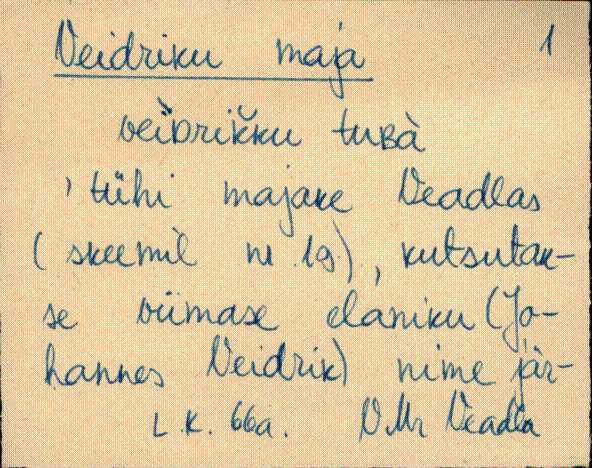 Veidriku maja 1
veìᴅriǩku tuʙà
' tühi majake Veadlas
(skeemil nr 19), kutsutak-
se viimase elaniku (Jo-
hannes Veidrik) nime jär-
L.K. 66a. VMr Veadla